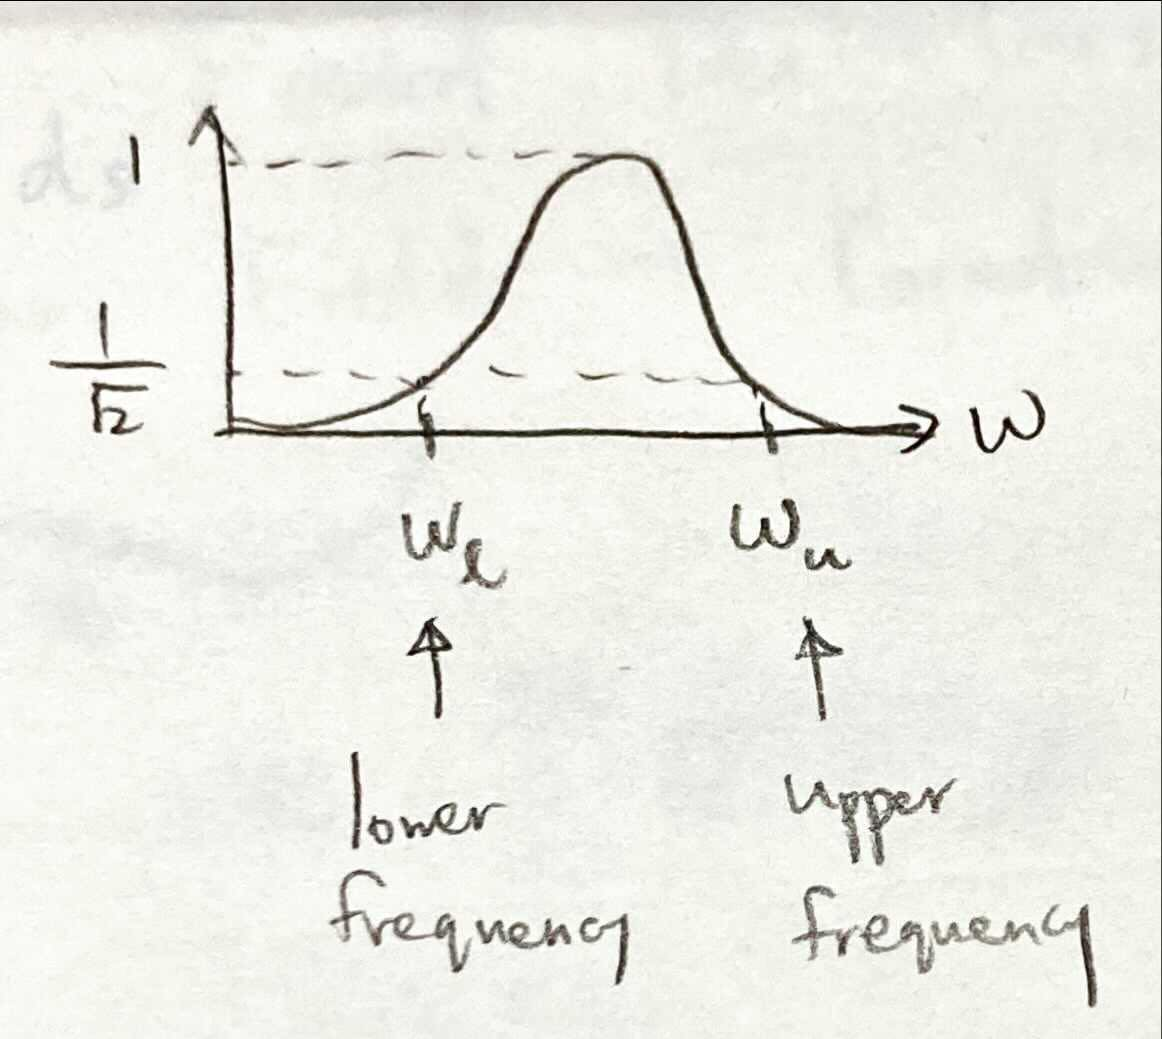 1
1
√2
W
Wℓ
Wu
lower
frequency
upper
frequency